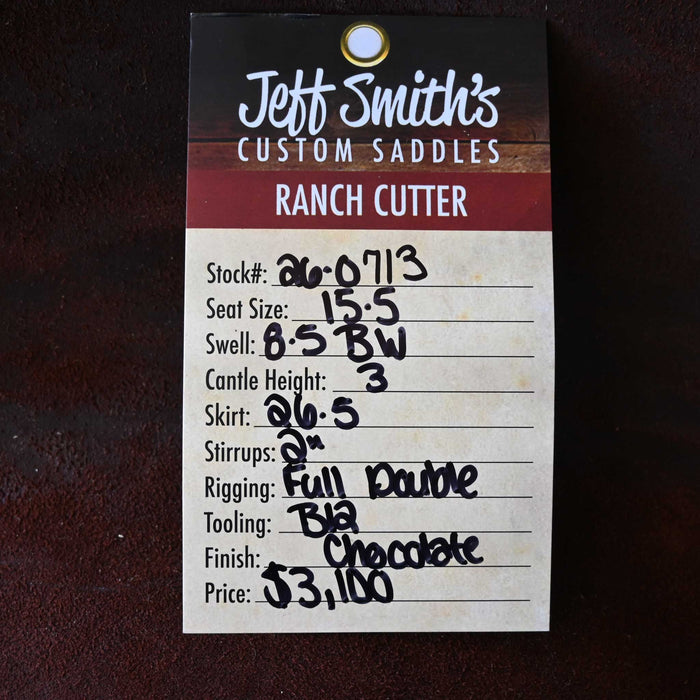 Jeff Smith's
CUSTOM SADDLES
RANCH CUTTER
Stock#: 26-0713
Seat Size: 15.5
Swell: 8.5 BW
Cantle Height: 3
Skirt: 26.5
Stirrups: 2"
Rigging: Full Double
Tooling: B12
Finish: Chocolate
Price: $3,100